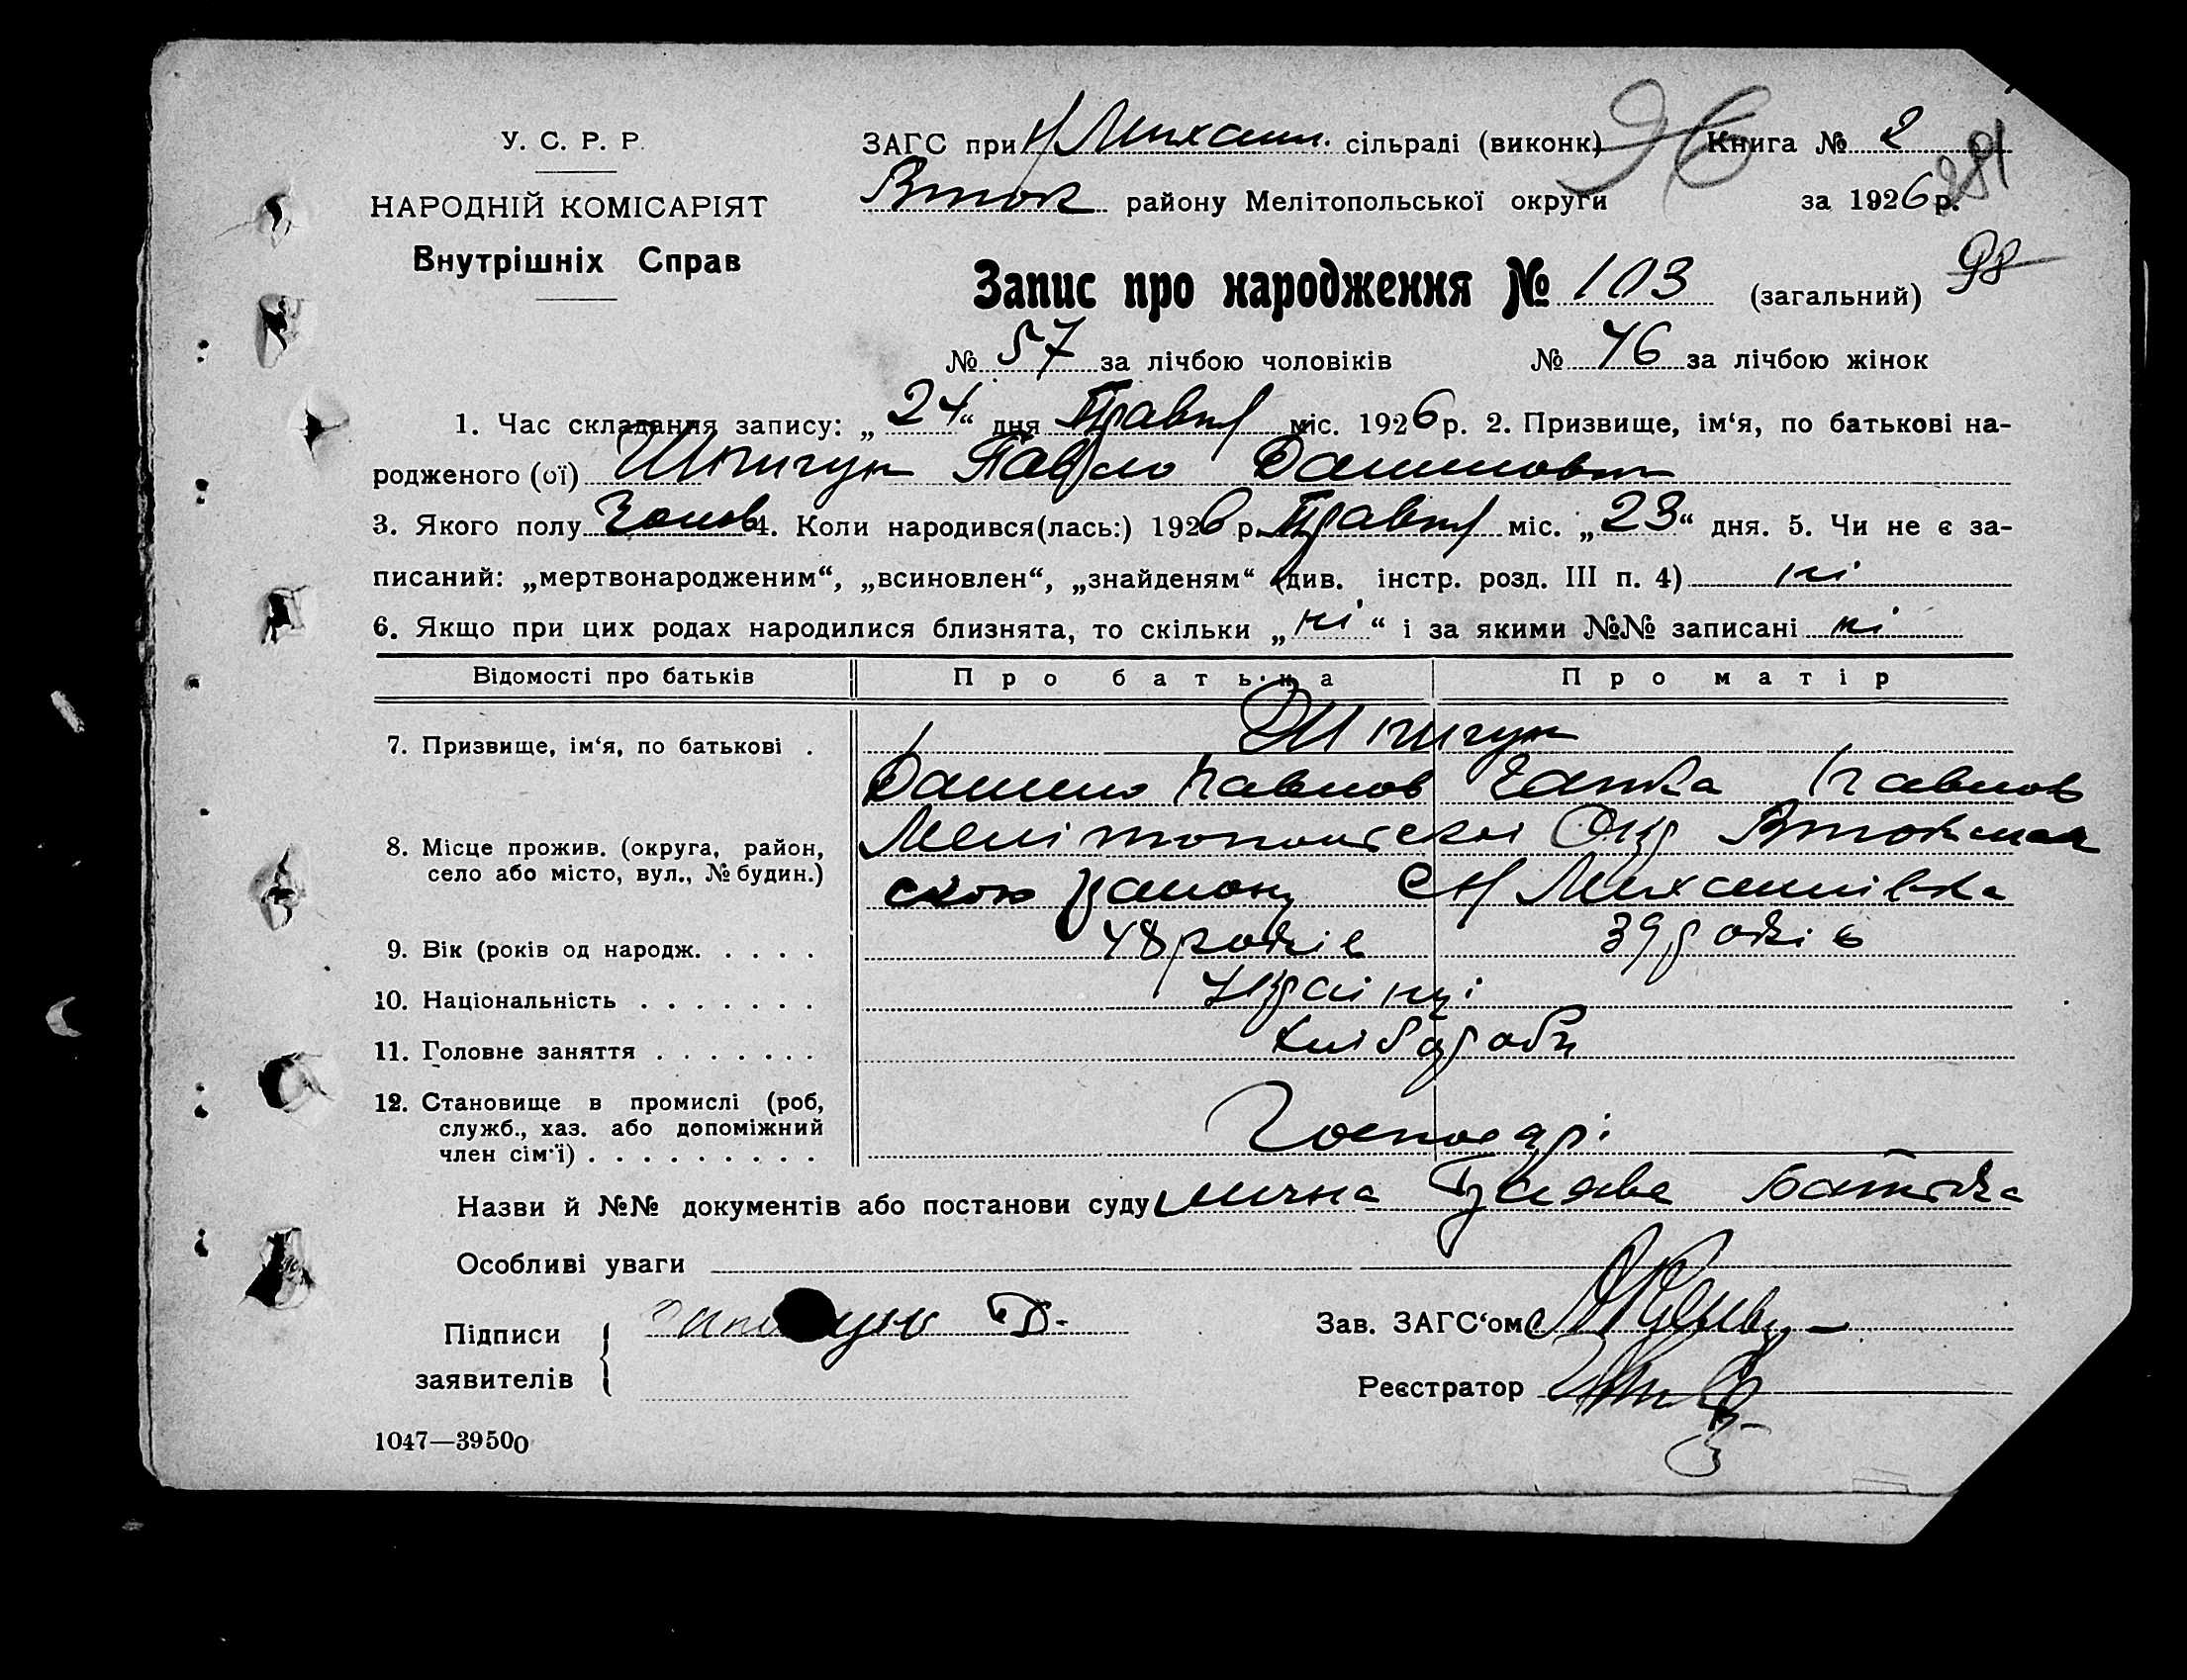 У. С. Р. Р.
НАРОДНІЙ КОМІСАРІЯТ
Внутрішніх Справ
ЗАГС при Н Михайл. сільраді (виконк)
96
Книга № 2
281
Вток району Мелітопольської округи
за 1926 р.
Запис про народження № 103 (загальний)
98
№ 57 за лічбою чоловіків № 46 за лічбою жінок
1. Час складання запису: „24“ дня Травня міс. 1926 р. 2. Призвище, ім‘я, по батькові на-
родженого (ої) Шпигун Павло Данилович
3. Якого полу Чолов 4. Коли народився(лась:) 1926 р. Травня міс. „23“ дня. 5. Чи не є за-
писаний: „мертвонародженим“, „всиновлен“, „знайденям“ (див. інстр. розд. III п. 4) ні
6. Якщо при цих родах народилися близнята, то скільки „ні“ і за якими №№ записані ні
Відомості про батьків Про батька Про матір
7. Призвище, ім‘я, по батькові . Шпигун
Данило Павлов Павлов
8. Місце прожив. (округа, район, село або місто, вул., № будин.) Мелітопольської Окр Втокмак
ского району с Н Михайлівка
9. Вік (років од народж. . . . . 48 років 39 років
10. Національність . . . . . . . Українці
11. Головне заняття . . . . . . . Хлібороби
12. Становище в промислі (роб,
служб., хаз. або допоміжний
член сім‘ї) . . . . . . . . . Господарі
Назви й №№ документів або постанови суду лична заява батька
Особливі уваги
Підписи
заявителів
Д.
Зав. ЗАГС‘ом
Реєстратор
1047—39500